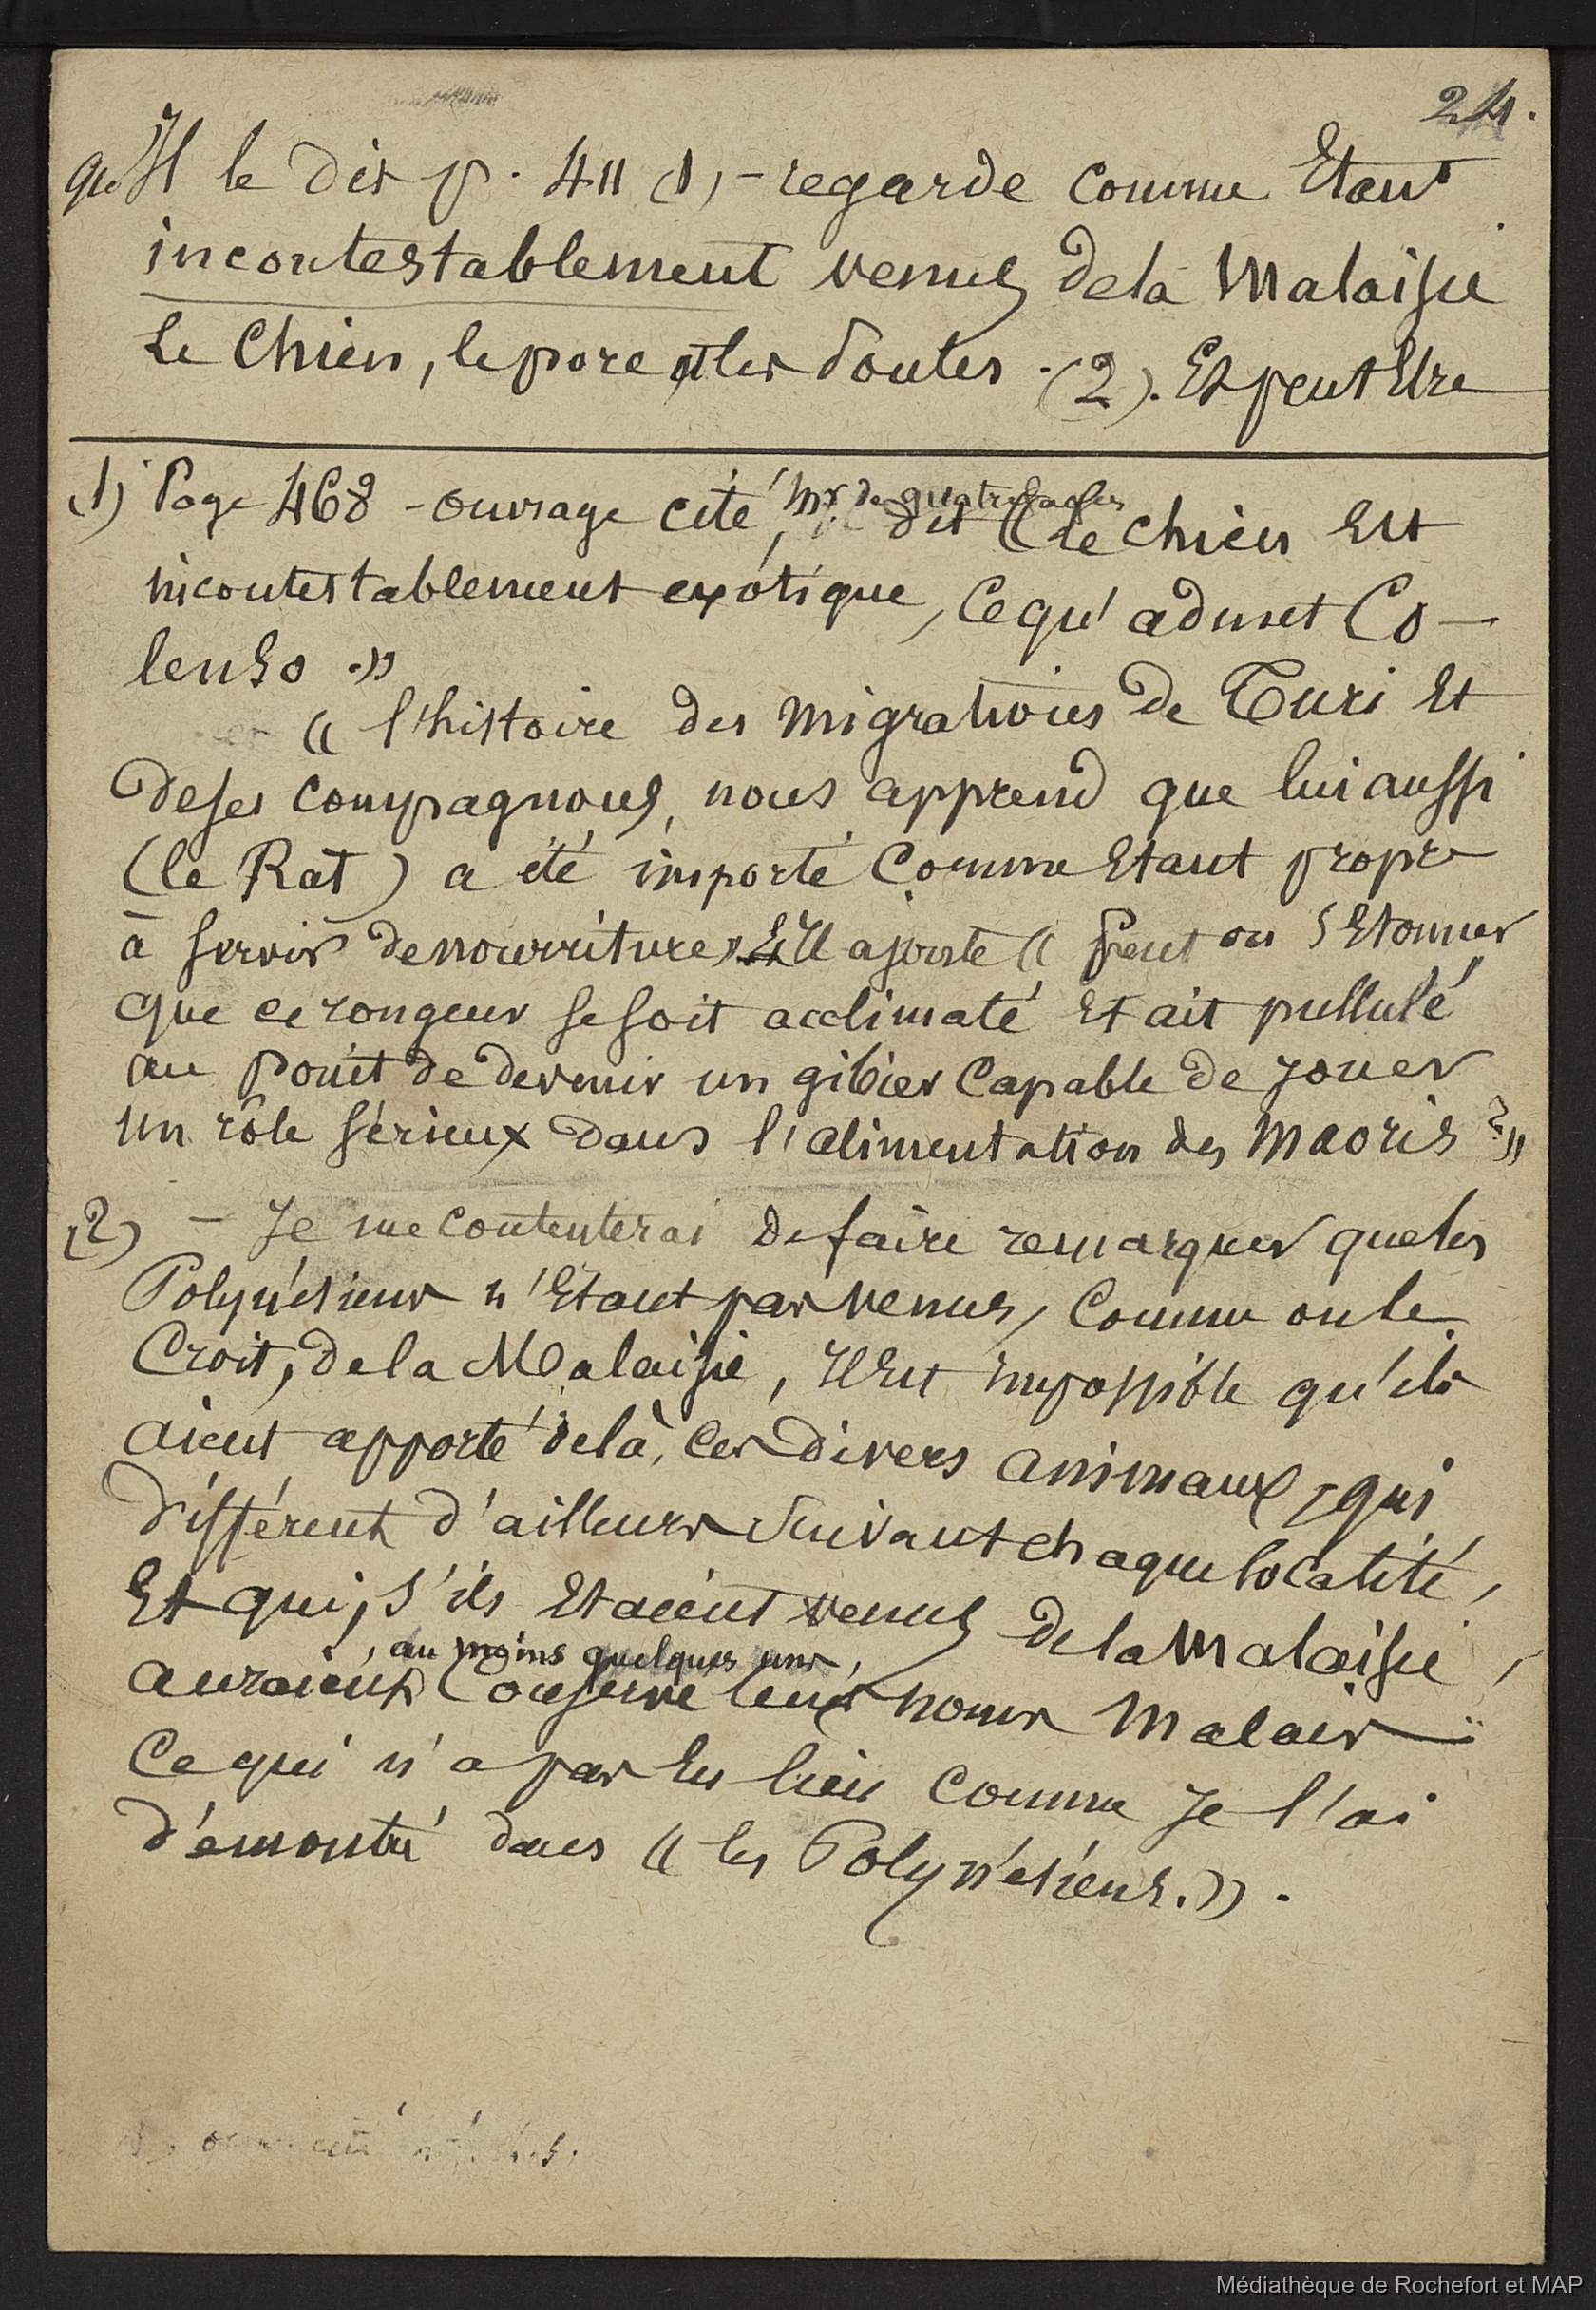 24.
qu'Il le dit p. 411 (1) - regarde comme Etant
incontestablement venus de la Malaisie
Le Chien, le porc et les Poules. (2). Et peut Etre
(1) Page 468 - ouvrage cité, Mr de quatrefages dit (( le chien Est
incontestablement exotique, Ce qu'admet Co-
lenso.))
(( l'histoire des migrations de Turi Et
de ses compagnons, nous apprend que lui aussi
(le Rat) a été importé Comme Etant propre
à servir de nourriture)) Il ajoute (( peut on s'Etonner
que ce rongeur se soit acclimaté Et ait pullulé
au point de devenir un gibier Capable de jouer
un rôle sérieux dans l'alimentation des Maoris?))
(2) - Je me contenterai de faire remarquer que les
Polynésiens n'Etant pas venus, Comme on le
Croit, de la Malaisie, Il Est impossible qu'ils
aient apporté delà, ces divers animaux, qui
différent d'ailleurs suivant chaque localité,
Et qui, s'ils Etaient venus de la Malaisie,
auraient au moins quelques uns, Conservé leurs noms Malais
Ce qui n'a pas Eu lieu Comme Je l'ai
démontré dans (( les Polynésiens.)).
Médiathèque de Rochefort et MAP